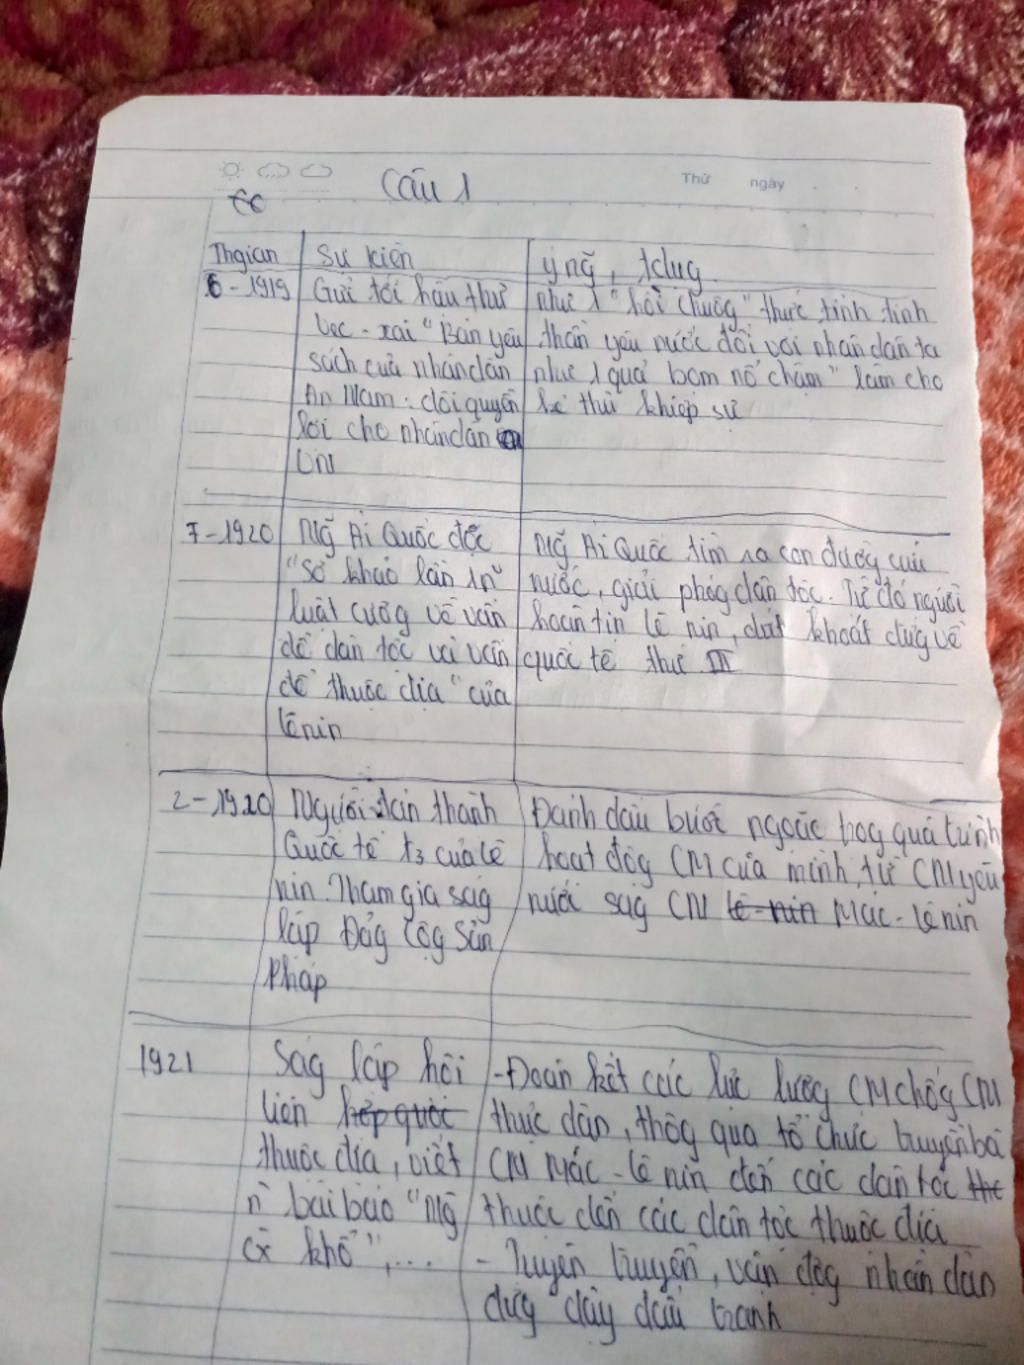 Thứ ngày
Câu 1
Thgian Sự kiện ý ng̃, tdug
6-1919 Gửi tới hầu thư như 1 "hồi chuôg" thức tỉnh tinh
Vec-xai "Bản yêu thần yêu nước đối với nhân dân ta
sách của nhân dân như 1 quả bom nổ chậm" làm cho
An Nam: đòi quyền kẻ thù khiếp sợ
lợi cho nhân dân
VN
7-1920 Ng̃ Ái Quốc đọc Ng̃ Ái Quốc tìm ra con đườg cứu
"Sơ khảo lần 1 n~ nước, giải phóg dân tộc. Từ đó người
luật cươg về vấn hoàn tin lê nin, dứt khoát đứg về
đề dân tộc và vấn quốc tế thứ III
đề thuộc địa" của
lênin
2-1920 Người dán thành Đánh dấu bước ngoặc trog quá trình
Quốc tế t3 của lê hoạt độg CM của mình, từ CN yêu
nin. Tham gia ság nước sag CN lê-nin Mác-lênin
lập Đảg Cộg Sản
Pháp
1921 Ság lập hội - Đoàn kết các lực lượg CM chốg CN
liên hiệp quốc thực dân, thôg qua tổ chức truyền bá
thuộc địa, viết CN Mác-lê nin đến các dân tộc the
n~ bài báo "Ng̃ thuộc đến các dân tộc thuộc địa
cx khổ",... - Tuyên truyền, vận độg nhân dân
đứg dậy đấu tranh